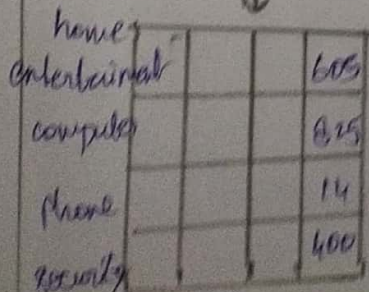 home
entertainment 605
computer 825
phone 14
400
security